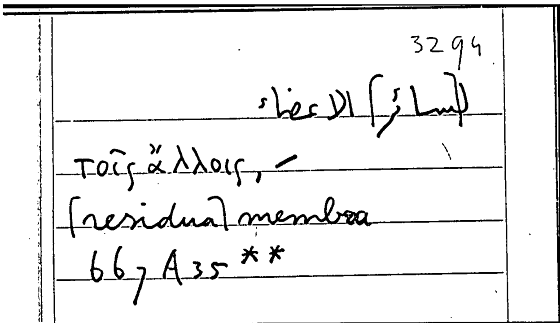 3294
[سائر] الاعضاء
τοῖς ἄλλοις, –
[residua] membra
667 A35 **